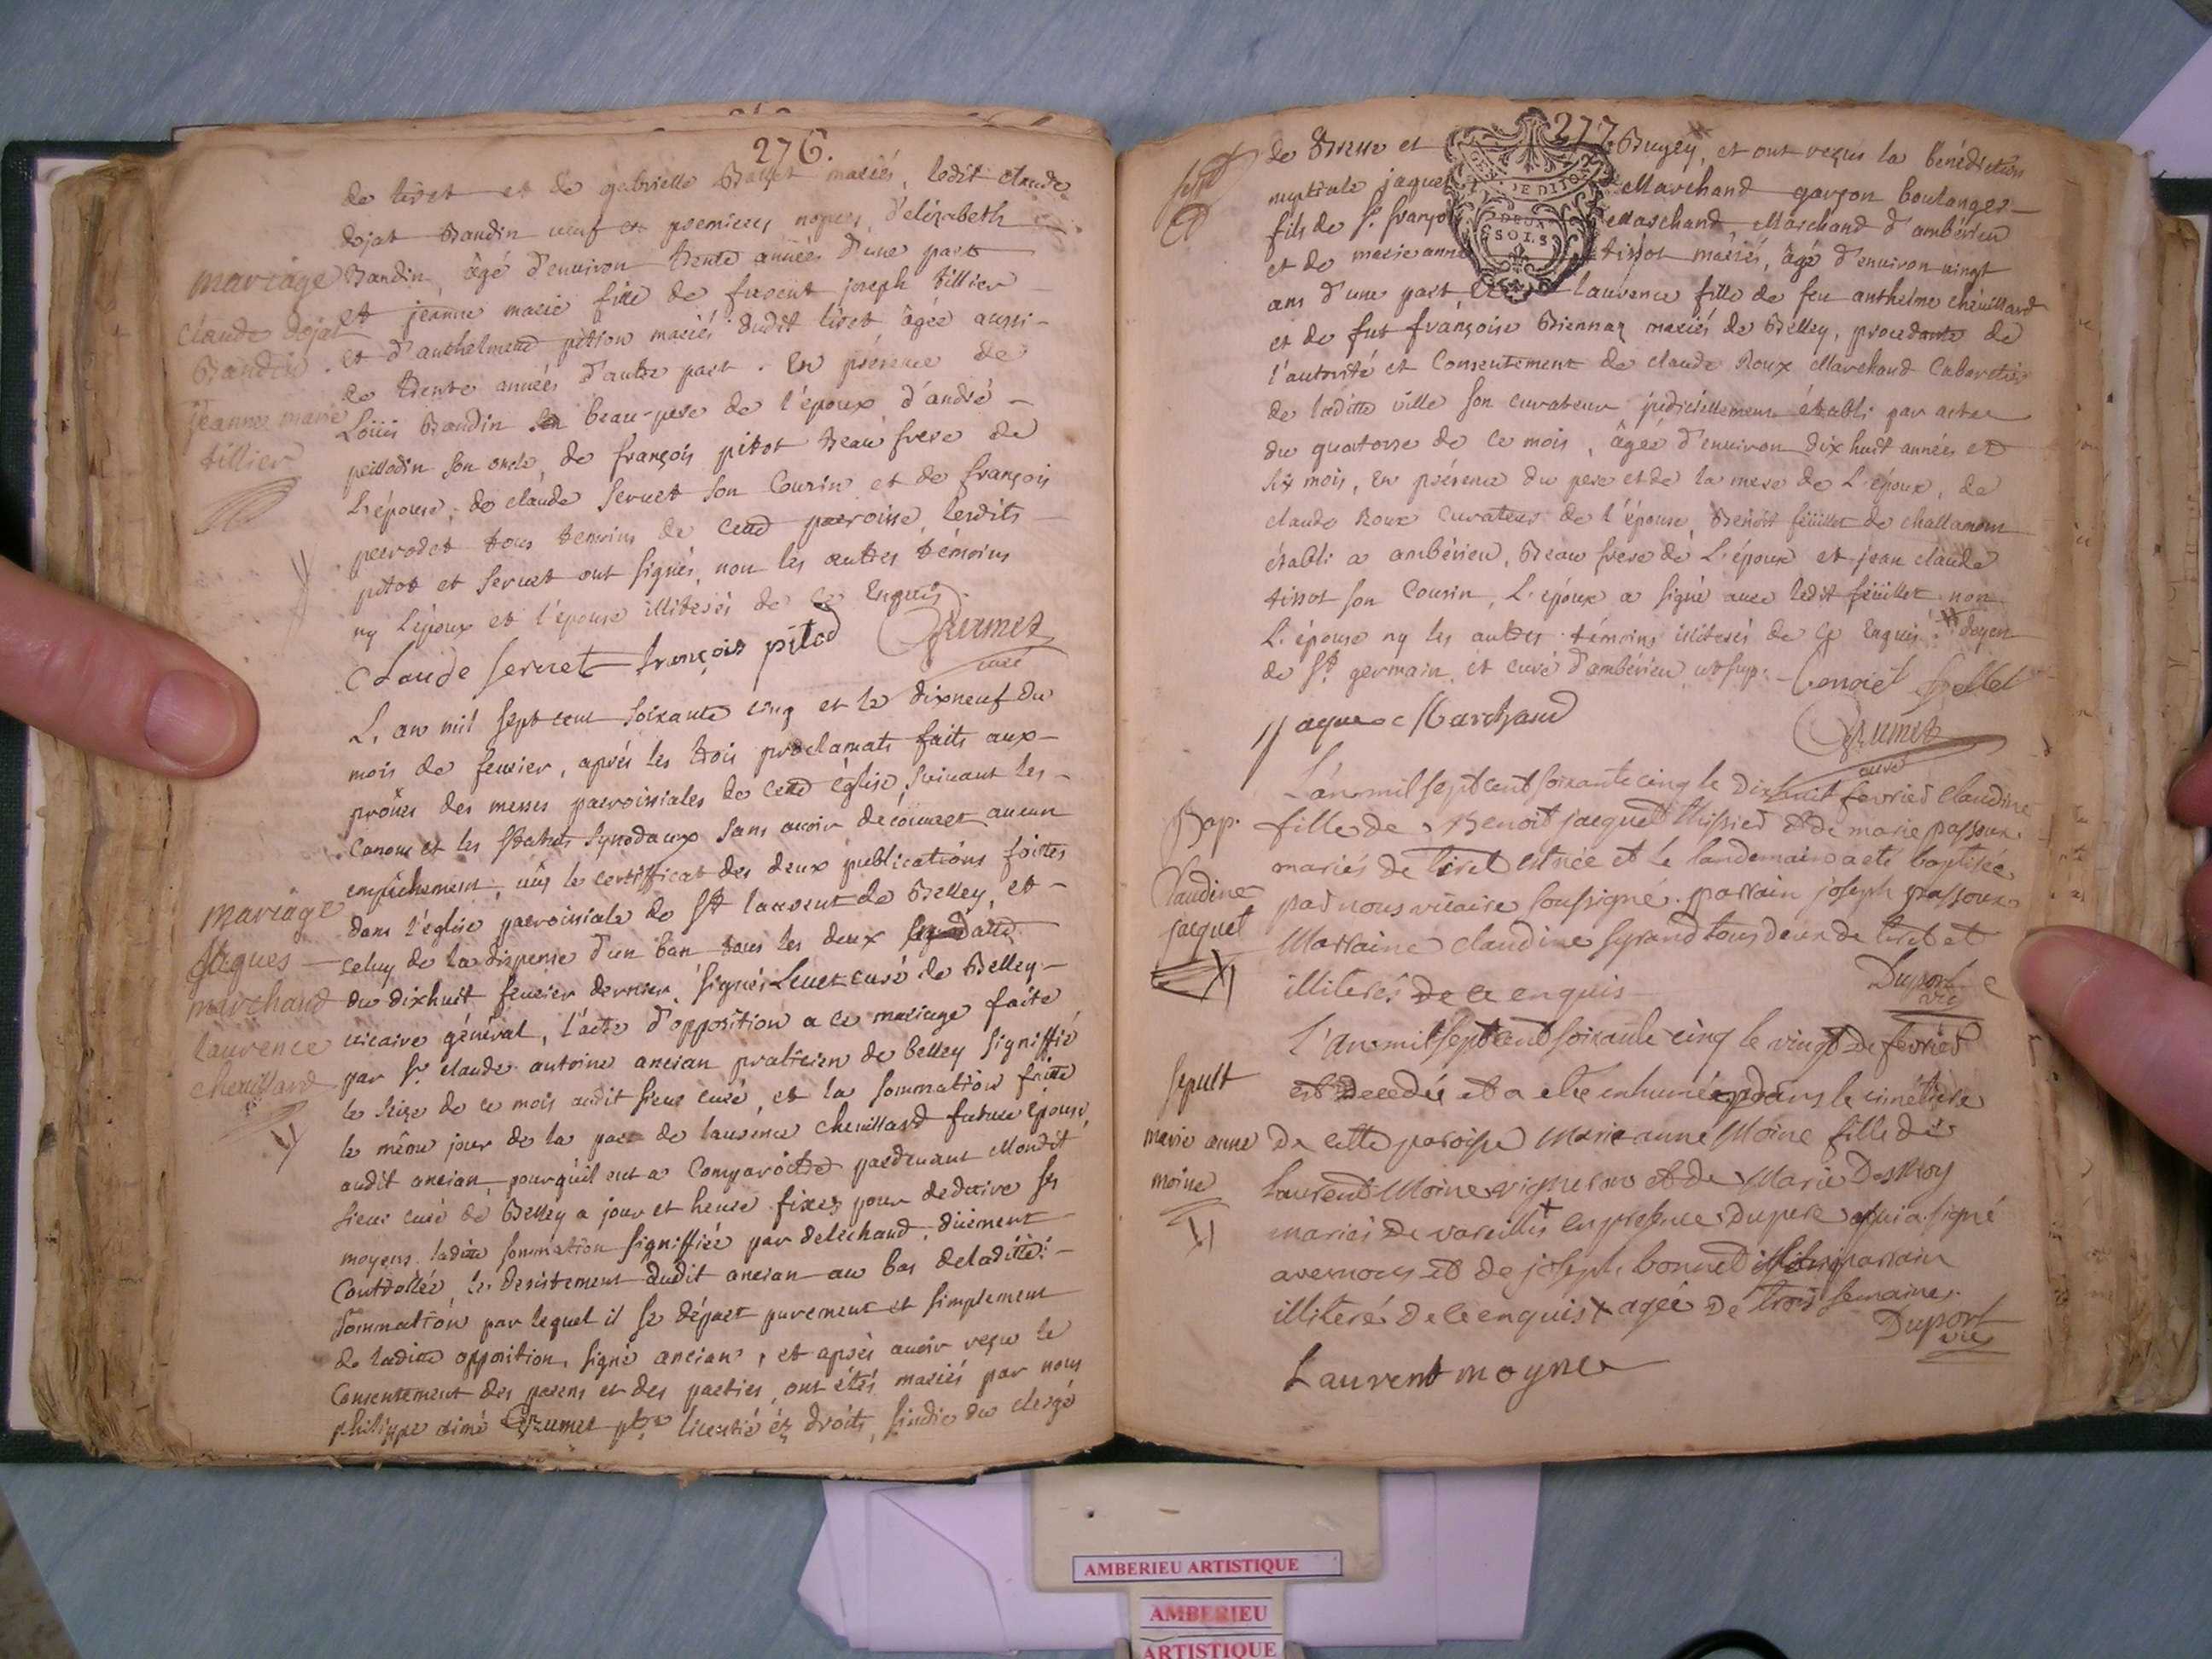 276.
de tiret et de gabrielle Ballet mariés, ledit claude
dojat Baudin veuf en premieres nopces d'elizabeth
Baudin, âgé d'environ trente années d'une part
et jeanne marie fille de furent joseph tillier
et d'anthelmend pition mariés dudit tiret âgée aussi
de trente années d'autre part. En présence de
Loüis Baudin beau-pere de l'époux d'andré
peillodin son oncle, de françois pitot beau frere de
L'épouse, de claude servet son Cousin et de françois
perrodet tous temoins de cette parroisse, lesdits
pitot et servet ont signés, non les autres témoins
ny L'époux et l'épouse illiterés de ce Enquis
Claude servet françois pitod Grumet
curé
mariage
claude dojat
Baudin
jeanne marie
tillier
L'an mil sept cent soixante cinq et le dixneuf du
mois de fevrier, aprés les trois proclamats faits aux
prônes des messes parroissiales de cette église, suivant les
Canons et les statuts synodaux sans avoir découvert aucun
empêchement, vûs le certifficat des deux publications faittes
dans l'église parroissiale de St laurent de Belley, et
celuy de la dispense d'un ban tous les deux
du dixhuit fevrier dernier signés Levet curé de Belley
vicaire général, l'acte d'opposition a ce mariage faite
par Sr claude antoine ancian praticien de belley signiffié
le seize de ce mois audit sieur curé, et la sommation faitte
le même jour de la part de laurence chevillard future épouse,
audit ancian, pourqu'il eut a Comparoitre pardevant Mondit
sieur curé de Belley a jour et heure fixes pour deduire ses
moyens, laditte sommation signiffiée par delechaud, düement
Controllée, le desistement dudit ancian au bas de laditte
sommation par lequel il se départ purement et simplement
de laditte opposition, signé ancian, et aprés avoir reçu le
Consentement des parens et des parties, ont étés mariés par nous
philippe aimé Grumet ptre licentié éz droits, sindic du clergé
mariage
Jâques
marchand
laurence
chevillard
277.
de Bresse et Bugey, et ont reçus la bénédiction
nuptiale jaques Marchand garçon boulanger
fils de Sr françois Marchand, Marchand d'ambérieu
et de marie anne tissot mariés, âgé d'environ vingt
ans d'une part, et laurence fille de feu anthelme chevillard
et de fut françoise Biennaz mariés de Belley, procedante de
l'autorité et Consentement de claude Roux Marchand Cabaretier
de laditte ville son curateur judiciellement établi par acte
du quatorse de ce mois, âgée d'environ dix huit années et
six mois, en présence du pere et de la mere de L'époux, de
claude Roux curateur de l'épouse, Benoit feüillet de challamont
établi a ambérieu, Beau frere de L'époux et jean claude
tissot son Cousin, L'époux a signé avec ledit feüillet non
L'épouse ny les autres témoins illiterés de ce Enquis. doyen
de St germain, et curé d'ambérieu ut sup.
jaque Marchand Grumet
curé
DEUX
SOLS
L'an mil sept cent soixante cinq le dixhuit fevrier Claudine
fille de Benoit jacquet thissier et de marie passoux
mariés de tiret est née et le landemain a eté baptisée
par nous vicaire soussigné. parrain joseph passoux
Marraine claudine tous deux de tiret et
illiterés de ce enquis
Duport
vic
Bap.
Claudine
jacquet
L'an mil sept cent soixante cinq le vingt de fevrier
est decedée et a eté inhumée dans le cimétiere
de cette paroisse Marie anne Moine fille de
Laurent Moine vigneron et de Marie
mariés de vareilles en presence du pere qui a signé
avec nous et de joseph bonnet parrain
illiteré de ce enquis x agée de trois semaines.
Duport
vic
Laurent moyne
sepult
marie anne
moine
AMBERIEU ARTISTIQUE
AMBERIEU
ARTISTIQUE